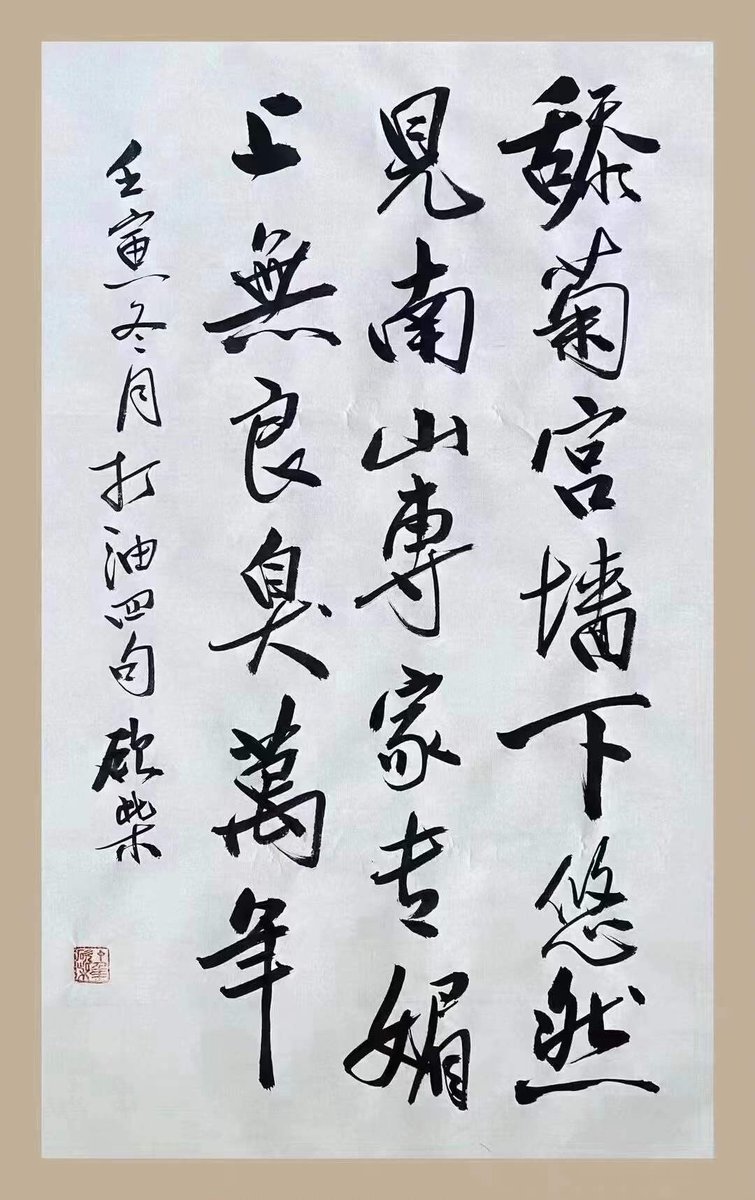 舔菊宮墙下悠然
見南山專家专媚
上無良臭萬年
壬寅冬月打油四句砍柴